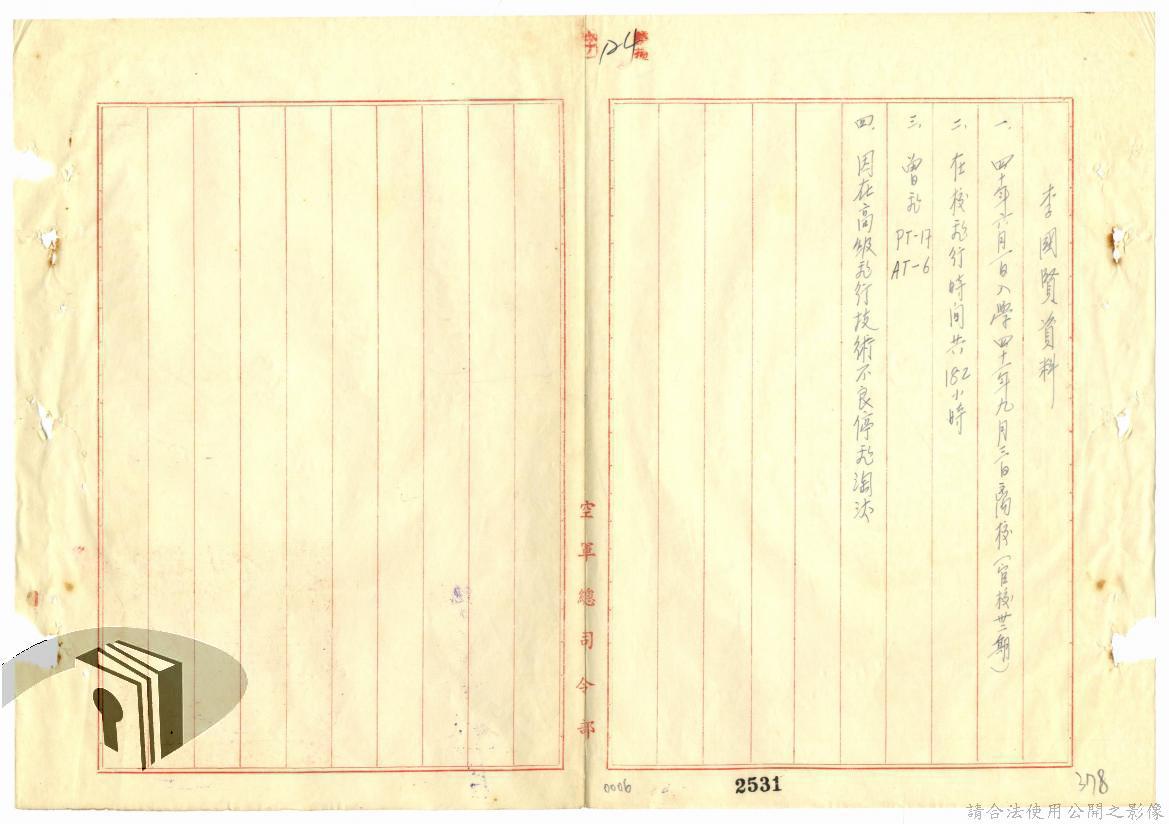 124
李國賢資料
一、四十年六月一日入學四十一年九月三日離校(官校卅二期)
二、在校飛行時間共182小時
三、曾飛 PT-17
AT-6
四、因在高級飛行技術不良停飛淘汰
空軍總司令部
0006
2531
378
請合法使用公開之影像